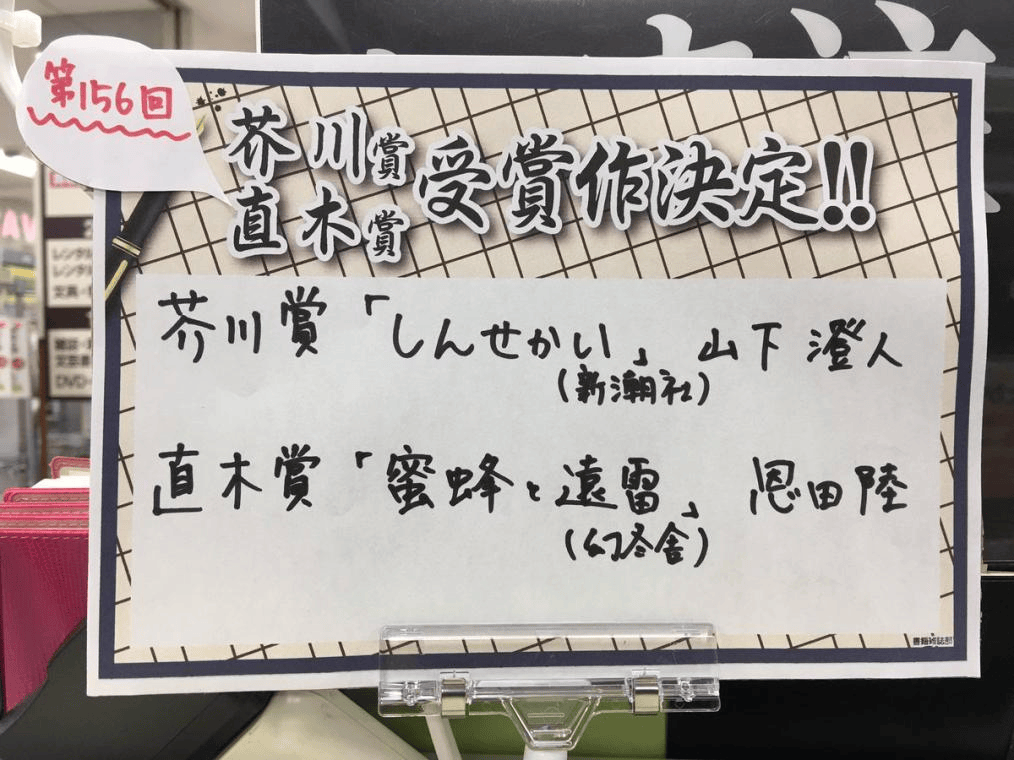 第156回
芥川賞
直木賞
受賞作決定!!
芥川賞「しんせかい」 山下澄人
(新潮社)
直木賞「蜜蜂と遠雷」 恩田陸
(幻冬舎)
書籍雑誌部
AV
レンタル
レンタル
DVD